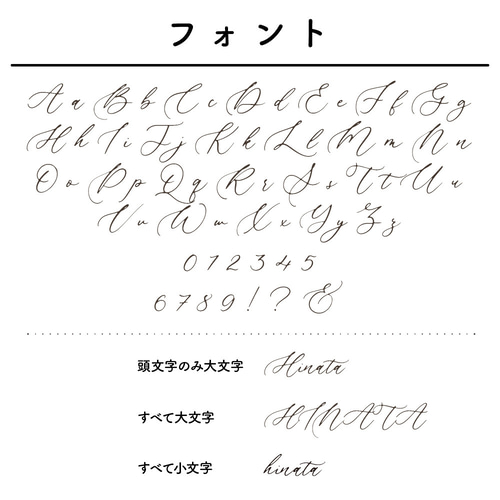 フォント
A a B b C c D d E e F f G g
H h I i J j K k L l M m N n
O o P p Q q R r S s T t U u
V v W w X x Y y Z z
0 1 2 3 4 5
6 7 8 9 ! ? &
頭文字のみ大文字 Hinata
すべて大文字 HINATA
すべて小文字 hinata